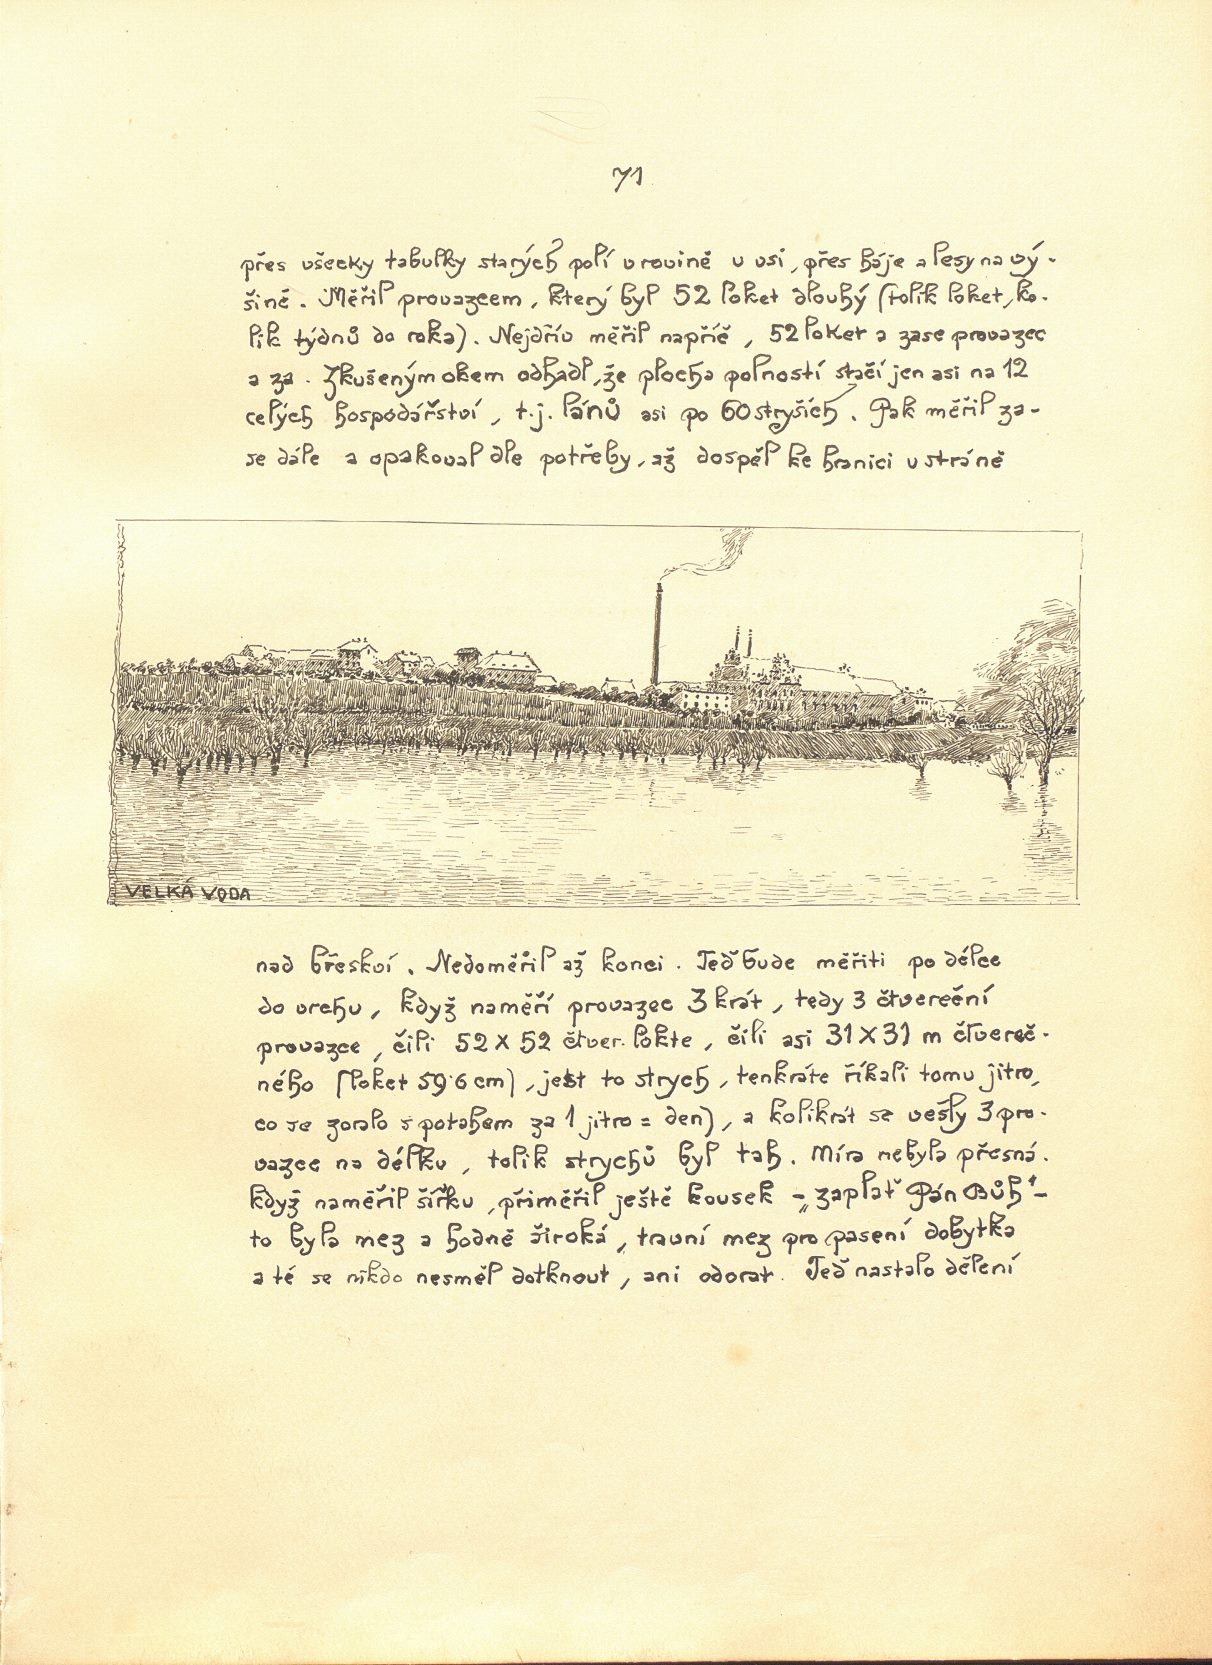 71
přes všecky tabulky starých polí v rovině u vsi, přes háje a lesy na vý-
šině. Měřil provazcem, který byl 52 loket dlouhý (tolik loket, ko-
lik týdnů do roka). Nejdřív měřil napříč, 52 loket a zase provazec
a za. Zkušeným okem odhadl, že plocha polností stačí jen asi na 12
celých hospodářství, t.j. lánů asi po 60 stryších. Pak měřil za-
se dále a opakoval dle potřeby, až dospěl ke hranici v stráně
VELKÁ VODA
nad břeskví. Nedoměřil až konci. Teď bude měřiti po délce
do vrchu, když naměří provazec 3 krát, tedy 3 čtvereční
provazce, čili 52 x 52 čtver. lokte, čili asi 31 x 31 m čtvereč-
ného (loket 59·6 cm), jest to strych, tenkráte říkali tomu jitro,
co se zoralo s potahem za 1 jitro = den), a kolikrát se vešly 3 pro-
vazce na délku, tolik strychů byl tah. Míra nebyla přesná.
Když naměřil šířku, přiměřil ještě kousek - „zaplať Pán Bůh" -
to byla mez a hodně široká, travní mez pro pasení dobytka
a té se nikdo nesměl dotknout, ani odorat. Teď nastalo dělení